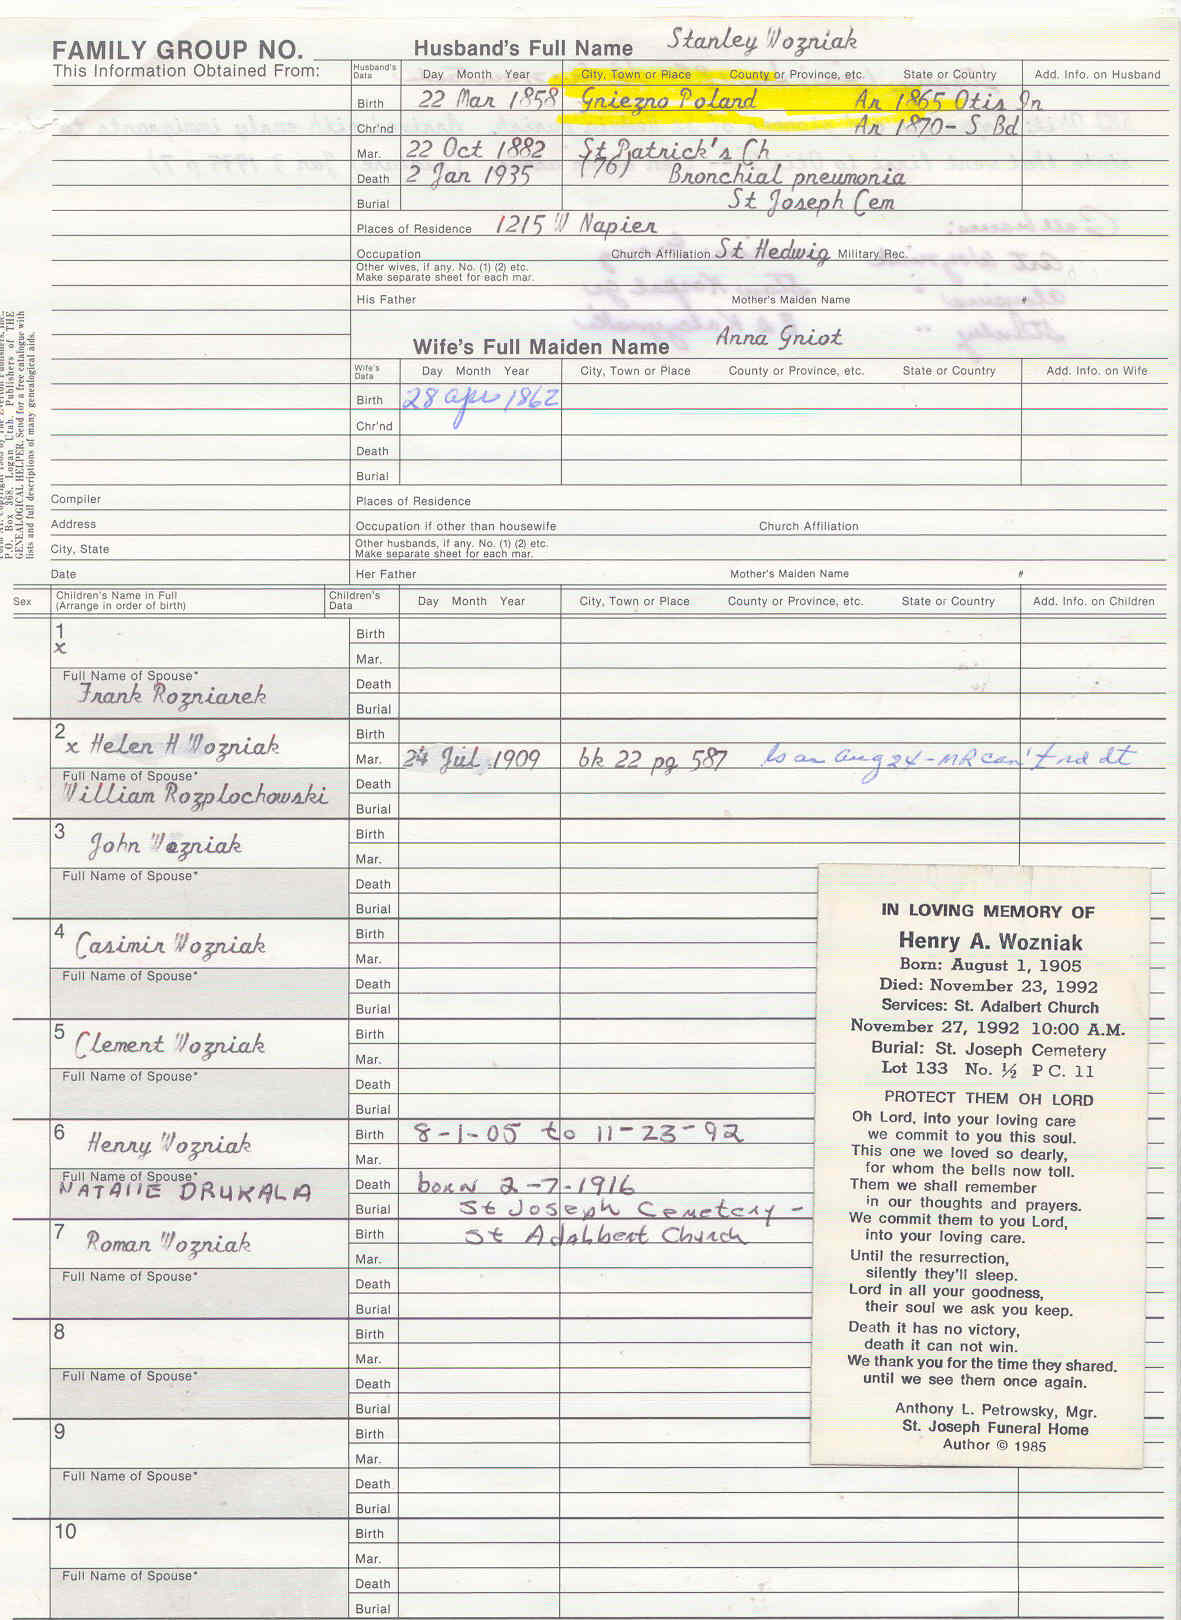 FAMILY GROUP NO.
This Information Obtained From:
Husband's Full Name Stanley Wozniak
Husband's Data Day Month Year City, Town or Place County or Province, etc. State or Country Add. Info. on Husband
Birth 22 Mar 1858 Gniezno Poland Ar 1865 Otis In
Chr'nd Ar 1870 - S Bd
Mar. 22 Oct 1882 St Patrick's Ch
Death 2 Jan 1935 (76) Bronchial pneumonia
Burial St Joseph Cem
Places of Residence 1215 W Napier
Occupation Church Affiliation St Hedwig Military Rec.
Other wives, if any. No. (1) (2) etc.
Make separate sheet for each mar.
His Father Mother's Maiden Name #
Wife's Full Maiden Name Anna Gniot
Wife's Data Day Month Year City, Town or Place County or Province, etc. State or Country Add. Info. on Wife
Birth 28 apr 1862
Chr'nd
Death
Burial
P.O. Box 368, Logan Utah. Publishers of THE
GENEALOGICAL HELPER. Send for a free catalogue with
lists and full descriptions of many genealogical aids.
Compiler Places of Residence
Address Occupation if other than housewife Church Affiliation
City, State Other husbands, if any. No. (1) (2) etc.
Make separate sheet for each mar.
Date Her Father Mother's Maiden Name #
Sex Children's Name in Full
(Arrange in order of birth) Children's Data Day Month Year City, Town or Place County or Province, etc. State or Country Add. Info. on Children
1 Birth
x Mar.
Full Name of Spouse* Death
Frank Rozniarek Burial
2 Birth
x Helen H Wozniak Mar. 24 Jul 1909 bk 22 pg 587 Is an Aug 24 - MR can't rd dt
Full Name of Spouse* Death
William Rozplochowski Burial
3 Birth
John Wozniak Mar.
Full Name of Spouse* Death
Burial
4 Birth
Casimir Wozniak Mar.
Full Name of Spouse* Death
Burial
5 Birth
Clement Wozniak Mar.
Full Name of Spouse* Death
Burial
6 Birth 8-1-05 to 11-23-92
Henry Wozniak Mar.
Full Name of Spouse* Death born 2-7-1916
NATALIE DRUKALA Burial St Joseph Cemetery -
7 Birth St Adalbert Church
Roman Wozniak Mar.
Full Name of Spouse* Death
Burial
8 Birth
Mar.
Full Name of Spouse* Death
Burial
9 Birth
Mar.
Full Name of Spouse* Death
Burial
10 Birth
Mar.
Full Name of Spouse* Death
Burial
IN LOVING MEMORY OF
Henry A. Wozniak
Born: August 1, 1905
Died: November 23, 1992
Services: St. Adalbert Church
November 27, 1992 10:00 A.M.
Burial: St. Joseph Cemetery
Lot 133 No. ½ P C. 11
PROTECT THEM OH LORD
Oh Lord, into your loving care
we commit to you this soul.
This one we loved so dearly,
for whom the bells now toll.
Them we shall remember
in our thoughts and prayers.
We commit them to you Lord,
into your loving care.
Until the resurrection,
silently they'll sleep.
Lord in all your goodness,
their soul we ask you keep.
Death it has no victory,
death it can not win.
We thank you for the time they shared.
until we see them once again.
Anthony L. Petrowsky, Mgr.
St. Joseph Funeral Home
Author © 1985